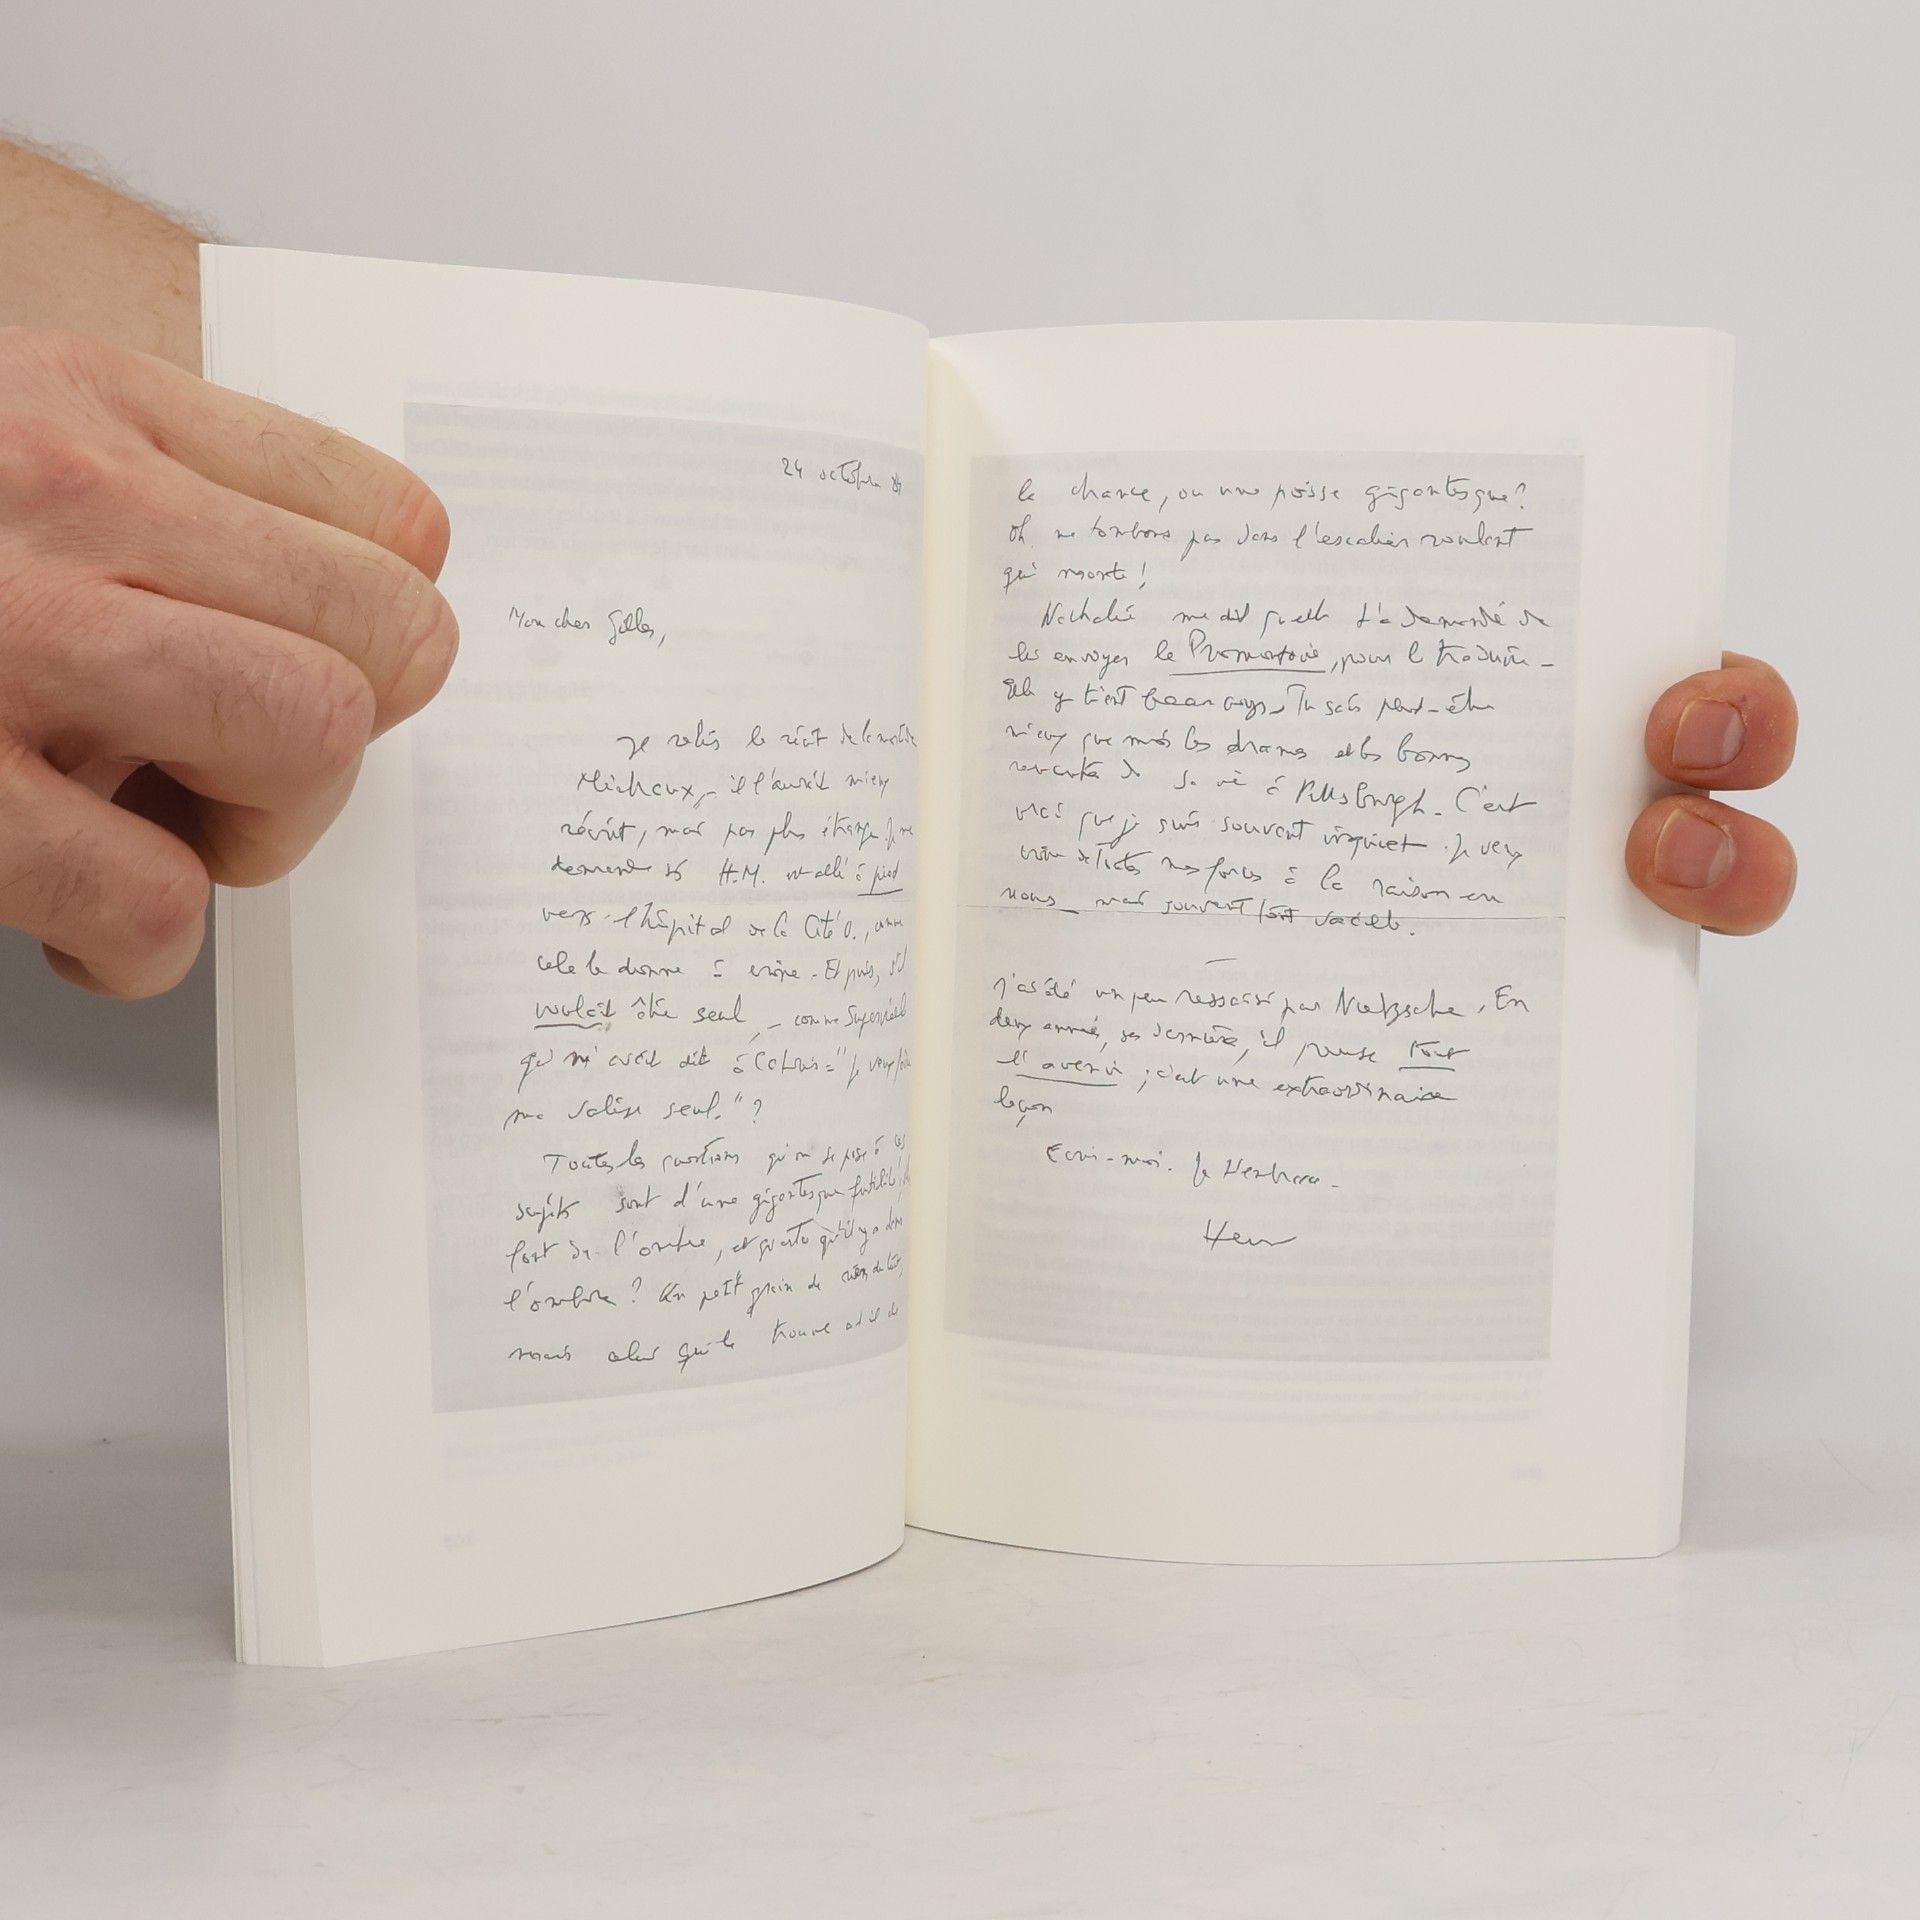 24 octobre
Mon cher Gilles,
Je relis le récit de la mort de
Michaux, – il l'aurait mieux
récrit, mais pas plus étrange. Je me
demande si H.M. est allé à pied
vers l'hôpital de la Cité U., comme
cela le donne à croire – Et puis, s'il
voulait être seul, – comme Supervielle
qui m'avait dit à = "Je veux faire
ma valise seul." ?
Toutes les questions qu'on se pose à ces
sujets sont d'une gigantesque futilité,
font de l'ombre, et qu'est-ce qu'il y a dans
l'ombre ? Un petit grain de rien du tout,
mais celui qui le trouve a-t-il de
la chance, ou une poisse gigantesque ?
Oh ne tombons pas dans l'escalier roulant
qui monte !
Nathalie me dit qu'elle t'a demandé de
lui envoyer le Promontoire, pour le traduire –
Elle y tient beaucoup – Tu sais peut-être
mieux que moi les drames et les bonnes
de sa vie à Pittsburgh – C'est
vrai que je suis souvent inquiet. Je veux
croire de toutes mes forces à la raison en
nous – mais souvent tout vacille.
–
J'ai été un peu ressaisi par Nietzsche. En
deux années, ses dernières, il pense tout
l'avenir ; c'est une extraordinaire
leçon
Écris-moi. Je t'embrasse –